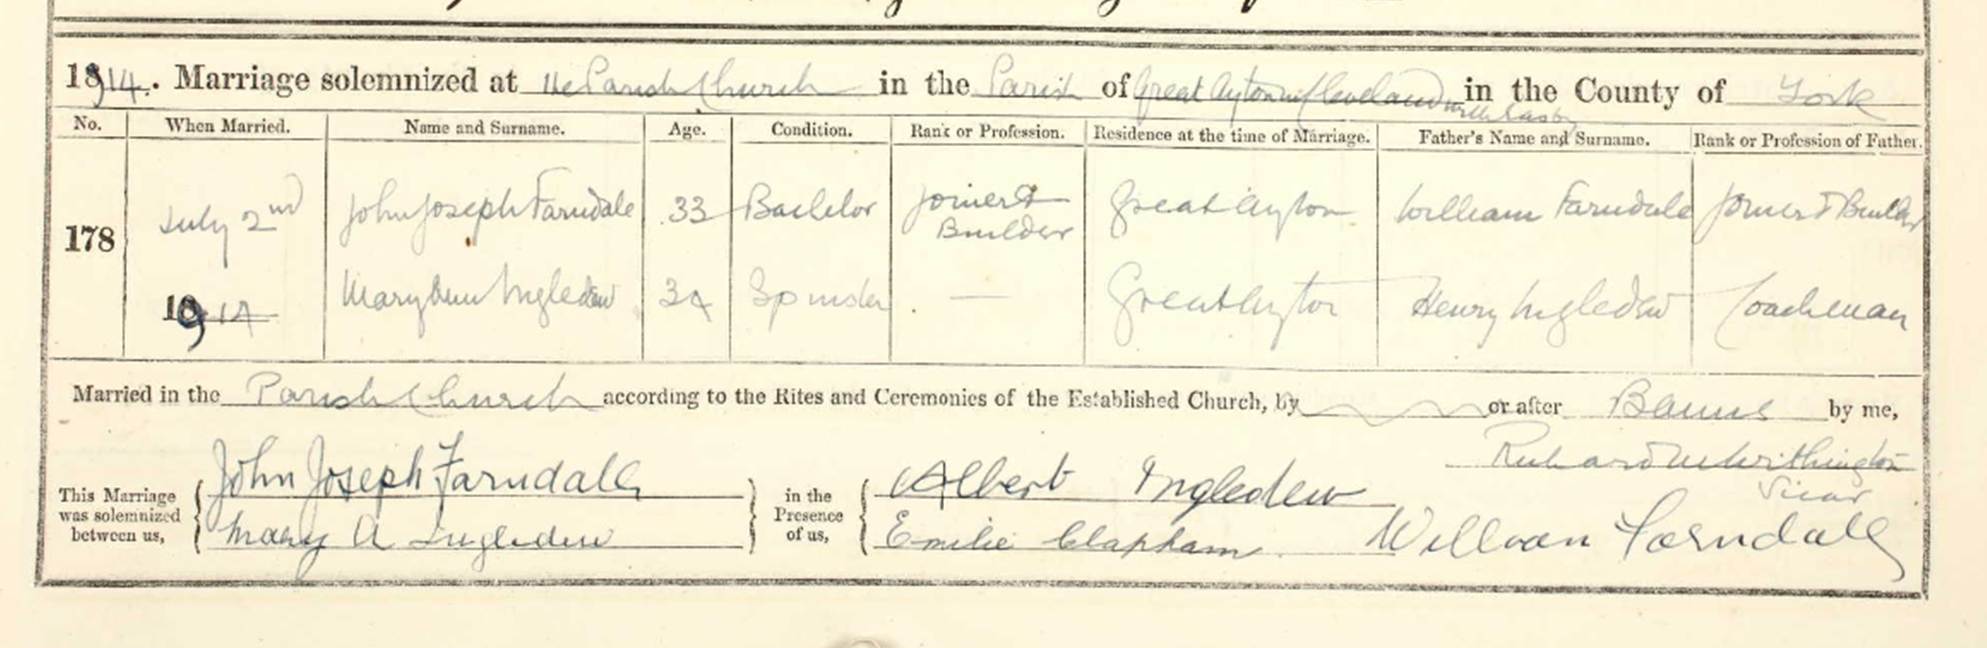 1914. Marriage solemnized at the Parish Church in the Parish of Great Ayton in Cleveland with Easby in the County of York
No. When Married. Name and Surname. Age. Condition. Rank or Profession. Residence at the time of Marriage. Father's Name and Surname. Rank or Profession of Father.
178 July 2nd 1914 John Joseph Farndale 33 Bachelor Joiner & Builder Great Ayton William Farndale Joiner & Builder
Mary Ann Ingledew 34 Spinster — Great Ayton Henry Ingledew Coachman
Married in the Parish Church according to the Rites and Ceremonies of the Established Church, by or after Banns by me,
Richard Withington
Vicar
This Marriage was solemnized between us, John Joseph Farndale in the Presence of us, Albert Ingledew
Mary A Ingledew Emilie Clapham William Farndale